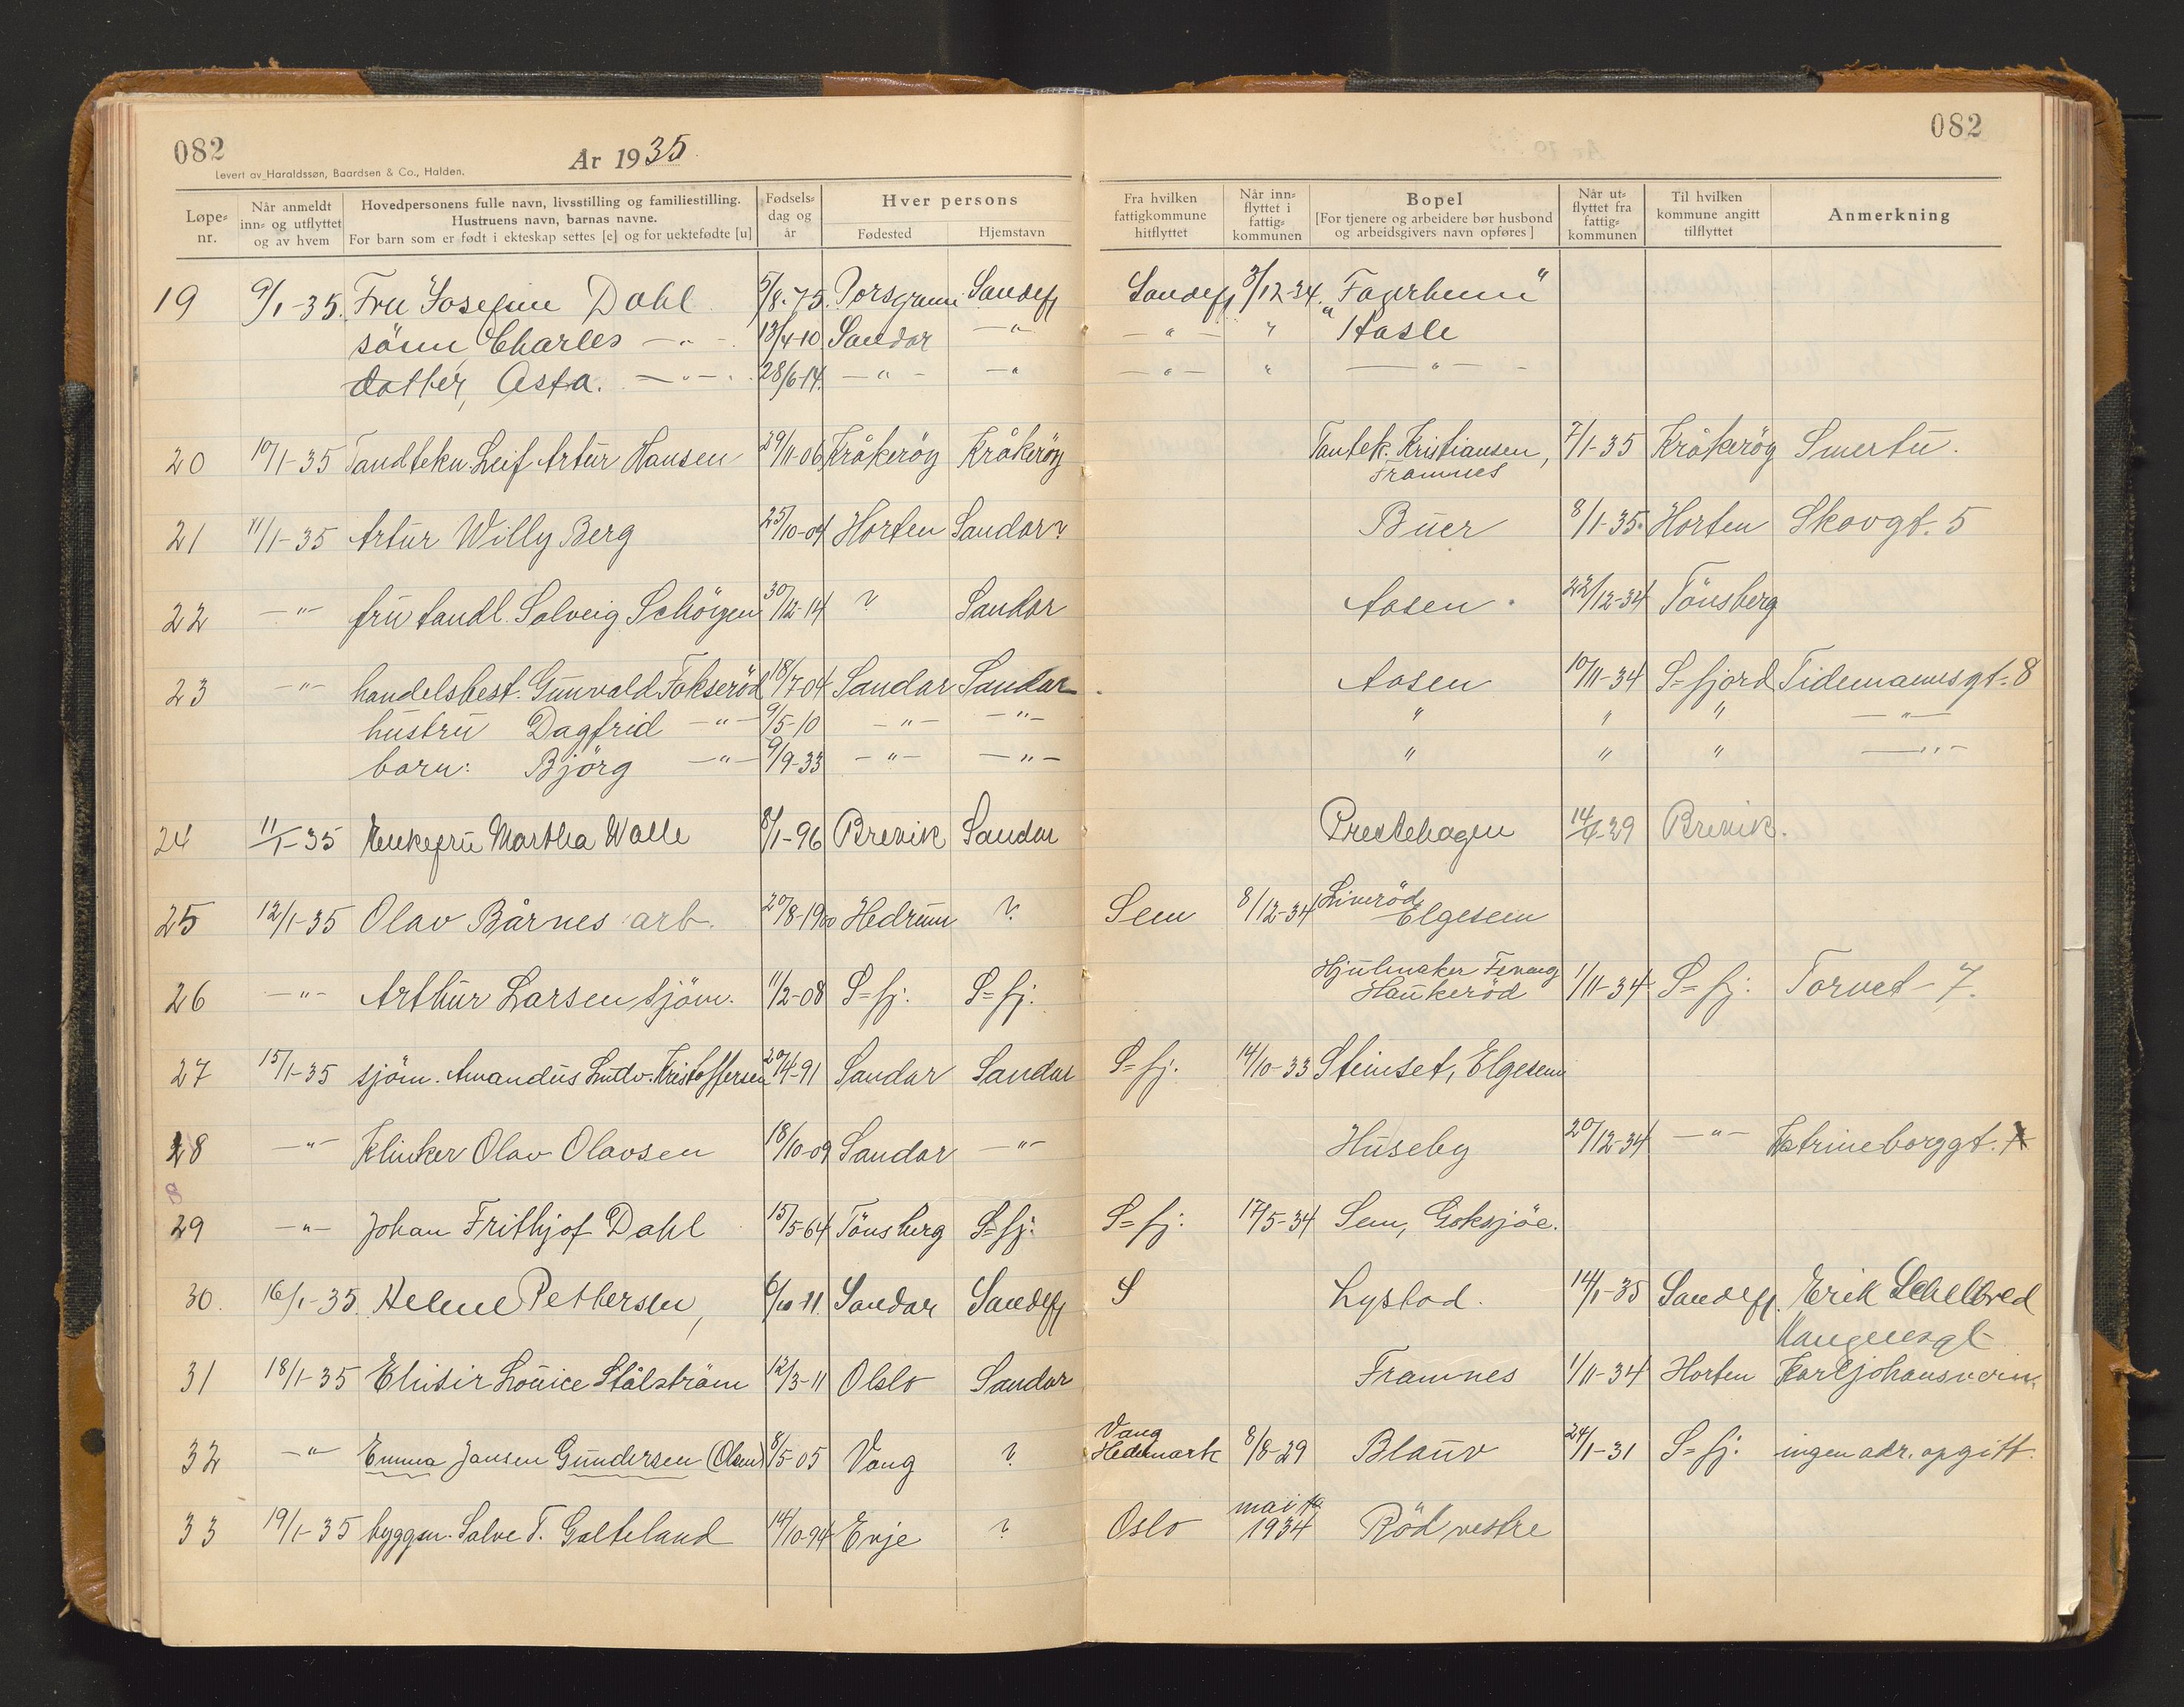 082
Levert av Haraldssøn, Baardsen & Co., Halden.
År 1935
082
Løpe=nr.
Når anmeldt inn= og utflyttet og av hvem
Hovedpersonens fulle navn, livsstilling og familiestilling.
Hustruens navn, barnas navne.
For barn som er født i ekteskap settes [e] og for uektefødte [u]
Fødsels=dag og år
Hver persons
Fødested
Hjemstavn
Fra hvilken fattigkommune hitflyttet
Når inn=flyttet i fattig=kommunen
Bopel
[For tjenere og arbeidere bør husbond og arbeidsgivers navn opføres]
Når ut=flyttet fra fattig=kommunen
Til hvilken kommune angitt tilflyttet
Anmerkning
19 9/1-35. Fru Josefine Dahl 5/8-75. Porsgrunn Sandefj Sandefj 3/12-34. "Fagerheim"
sönn Charles -"- 13/4-10. Sandar -"- -"- " Hasle
datter, Asta. -"- 28/6-14. -"- -" -"- " -"-
20 10/1-35 Tandtekn. Leif Artur Hansen 29/11-06 Kråkeröy Kråkeröy Tantek. Kristiansen, 7/1-35 Kråkeröy Smertu.
Framnes
21 11/1-35 Artur Willy Berg 25/10-04 Horten Sandar? Buer 8/1-35. Horten Skovgt. 5
22 -"- fru tandl. Solveig Schöyen 30/12-14 ? Sandar Aasen. 22/12-34 Tönsberg
23 -"- handelsbest. Gunvald Fokseröd 18/7-04 Sandar Sandar Aasen 10/11-34 S=fjord Tidemannsgt. 8
hustru Dagfrid -"- 9/5-10 -"- -"- " " " -"-
barn: Björg -"- 9/9-33 -"- -"- " " " -"-
24 11/1-35 Enkefru Martha Walle 8/1-96 Brevik Sandar Prestehagen 14/4-29 Brevik.
25 12/1-35 Olav Bårnes arb. 20/8-1900 Hedrum ? Sem 8/12-34 Liveröd
Elgesem
26 -"- Arthur Larsen sjöm. 11/2-08 S=fj. S=fj. Hjulmaker
Haukeröd 1/11-34 S=fj. Torvet 7.
27 15/1-35 sjöm. Amandus Ludv. Kristoffersen 20/4-91 Sandar Sandar S=fj. 14/10-33 Steinset, Elgesem
28 -"- Klinker Olav Olavsen 18/10-09 Sandar -"- Huseby 20/12-34 -"- Katrineborggt.
29 -"- Johan Frithjof Dahl 15/5-64 Tönsberg S=fj. S=fj. 17/5-34 Sem, Goksjöe.
30. 16/1-35. Helene Pettersen, 6/10-11. Sandar Sandefj S Lystad. 14/1-35 Sandefj. Erik
31 18/1-35 Louice Stålström 12/3-11 Oslo Sandar Framnes 1/11-34 Horten Karljohansvern.
32 -"- Emma Jansen Gundersen (Olsen) 8/5-05 Vang ? Vang
Hedemark 8/8-29 Blauv 24/1-31 S=fj. ingen adr. opgitt.
33 19/1-35 byggm. Salve T. Galteland 14/10-94 Evje ? Oslo mai
1934 Röd vestre